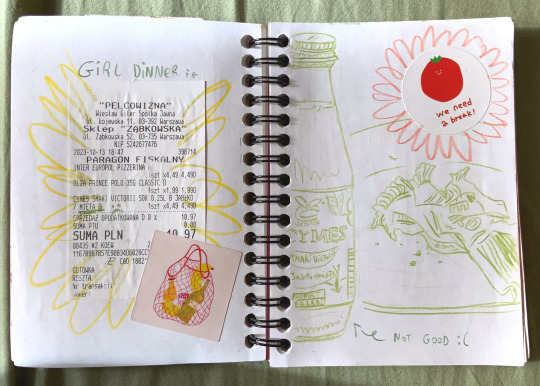 GIRL DINNER :E
"PELCOWIZNA"
Wiesław Giler Spółka Jawna
ul. Łojewska 11, 03-392 Warszawa
Sklep "ZĄBKOWSKA"
ul. Ząbkowska 52, 03-735 Warszawa
NIP 5242677476
2023-10-13 18:47 396714
PARAGON FISKALNY
INTER EUROPOL PIZZERINA
1szt x4,49 4,49D
OLZA PRINCE POLO 35G CLASSIC D
1szt x1,99 1,99D
CYMES SMAKI VICTORII SOK 0,25L D JABŁKO
/ MIĘTA D 1szt x4,49 4,49D
SPRZEDAŻ OPODATKOWANA D 0 % 10,97
SUMA PTU 0,00
SUMA PLN 10,97
00435 #2
CAD 1802
GOTÓWKA
RESZTA
Nr transakcji
we need
a break!
CYMES
NOT GOOD :C